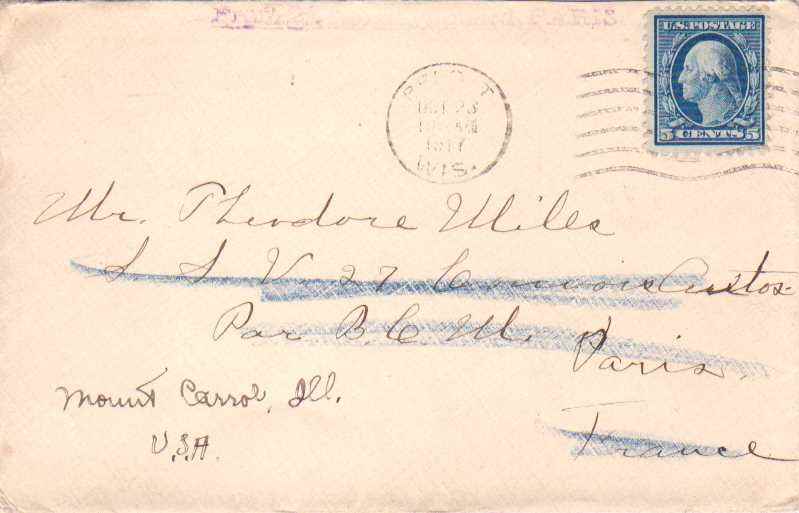 U.S. POSTAGE
5 CENTS 5
BELOIT
OCT 23
1917
WIS.
Mr. Theodore Miller
S S U 27 Convois Autos
Par B. C. M. Paris
France
Mount Carrol, Ill.
U.S.A.